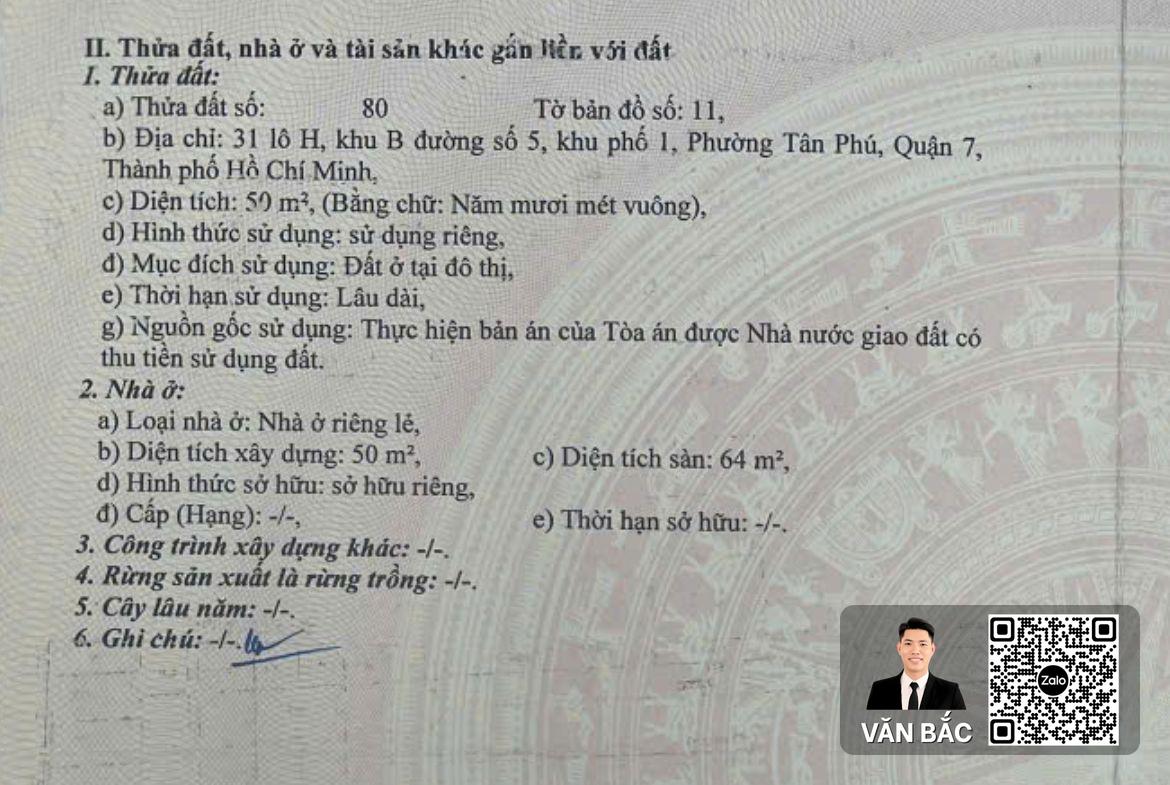 II. Thửa đất, nhà ở và tài sản khác gắn liền với đất
1. Thửa đất:
a) Thửa đất số: 80 Tờ bản đồ số: 11,
b) Địa chỉ: 31 lô H, khu B đường số 5, khu phố 1, Phường Tân Phú, Quận 7,
Thành phố Hồ Chí Minh,
c) Diện tích: 50 m², (Bằng chữ: Năm mươi mét vuông),
d) Hình thức sử dụng: sử dụng riêng,
đ) Mục đích sử dụng: Đất ở tại đô thị,
e) Thời hạn sử dụng: Lâu dài,
g) Nguồn gốc sử dụng: Thực hiện bản án của Tòa án được Nhà nước giao đất có
thu tiền sử dụng đất.
2. Nhà ở:
a) Loại nhà ở: Nhà ở riêng lẻ,
b) Diện tích xây dựng: 50 m², c) Diện tích sàn: 64 m²,
d) Hình thức sở hữu: sở hữu riêng,
đ) Cấp (Hạng): -/-, e) Thời hạn sở hữu: -/-.
3. Công trình xây dựng khác: -/-.
4. Rừng sản xuất là rừng trồng: -/-.
5. Cây lâu năm: -/-.
6. Ghi chú: -/-.
Zalo
VĂN BẮC